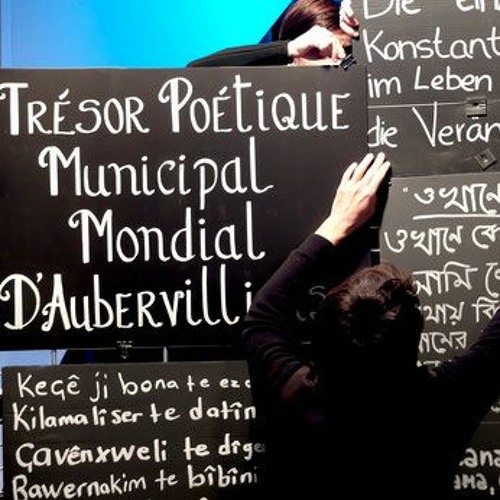 TRÉSOR POÉTIQUE
Municipal
Mondial
D'AUBERVILLI
Die ein
Konstant
im Leben
die Verän
"ওখানে
ওখানে কে
আমি
Keçê ji bona te
Kilama li ser te datîn
Gavên xweli te
Rawernakim te bîbîni